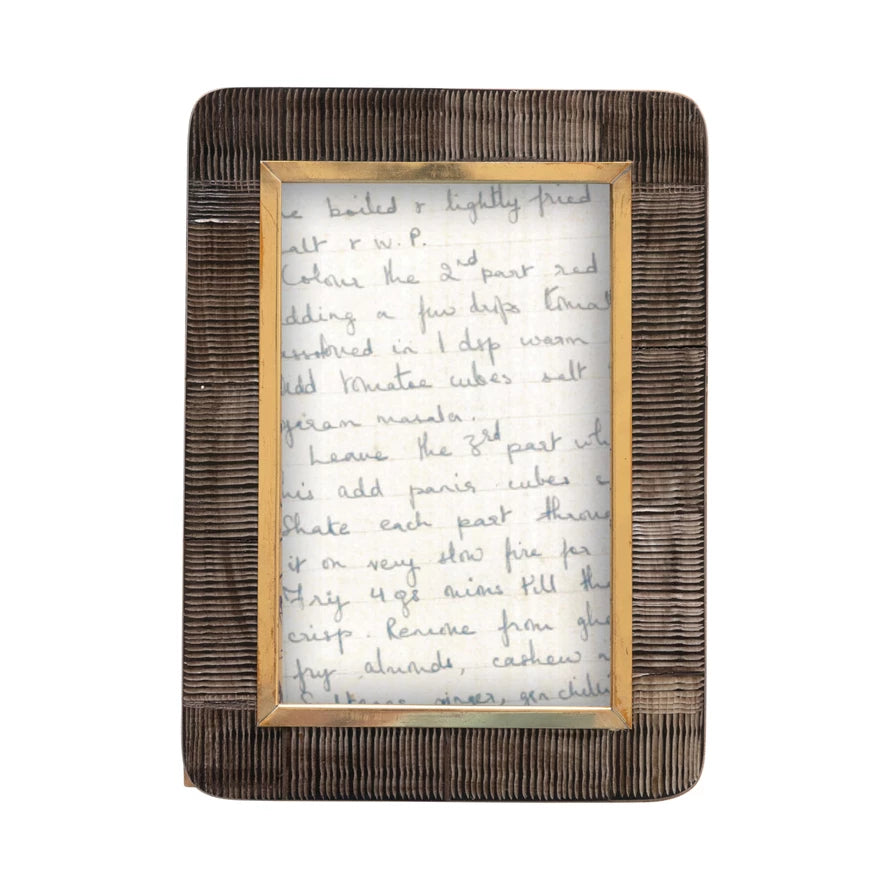 e boiled & lightly fried
alt & W.P.
Colour the 2nd part red
dding a few drps tomat
issolved in 1 dsp warm
Add tomatoe cubes salt
garam masala.
Leave the 3rd part wh
his add panir cubes
Shake each part throug
it on very slow fire for
Fry 4 gs onions till the
crisp. Remove from ghe
fry almonds, cashew n
Sultanas ginger, grn chilli